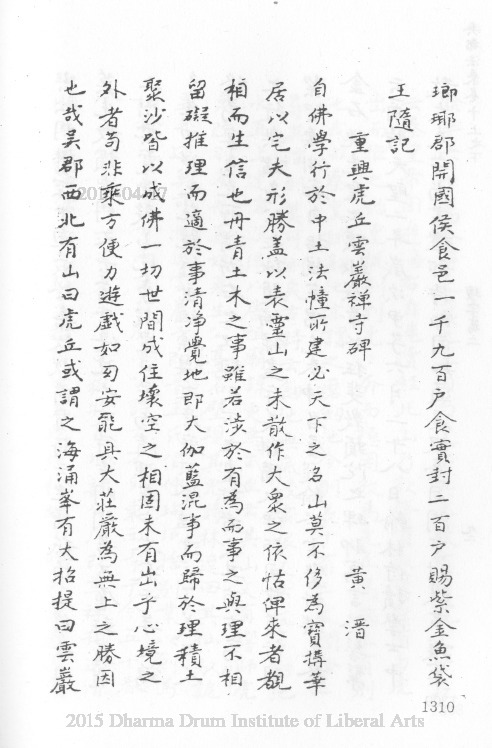 瑯琊郡開國侯食邑一千九百戶食實封二百戶賜紫金魚袋
王隨記
重興虎丘雲巖禅寺碑 黄溍
自佛學行於中土法幢所建必天下之名山莫不侈為寶搆華
居以宅夫形勝盖以表靈山之未散作大衆之依怙俾來者覩
相而生信也丹青土木之事雖若涉於有為而事之與理不相
留礙推理而適於事清净覺地即大伽藍混事而歸於理積土
聚沙皆以成佛一切世間成住壞空之相固未有出乎心境之
外者苟非乘方便力遊戲如幻安能具大莊嚴為無上之勝因
也哉吴郡西北有山曰虎丘或謂之海涌峯有大招提曰雲巖
1310
2015 Dharma Drum Institute of Liberal Arts